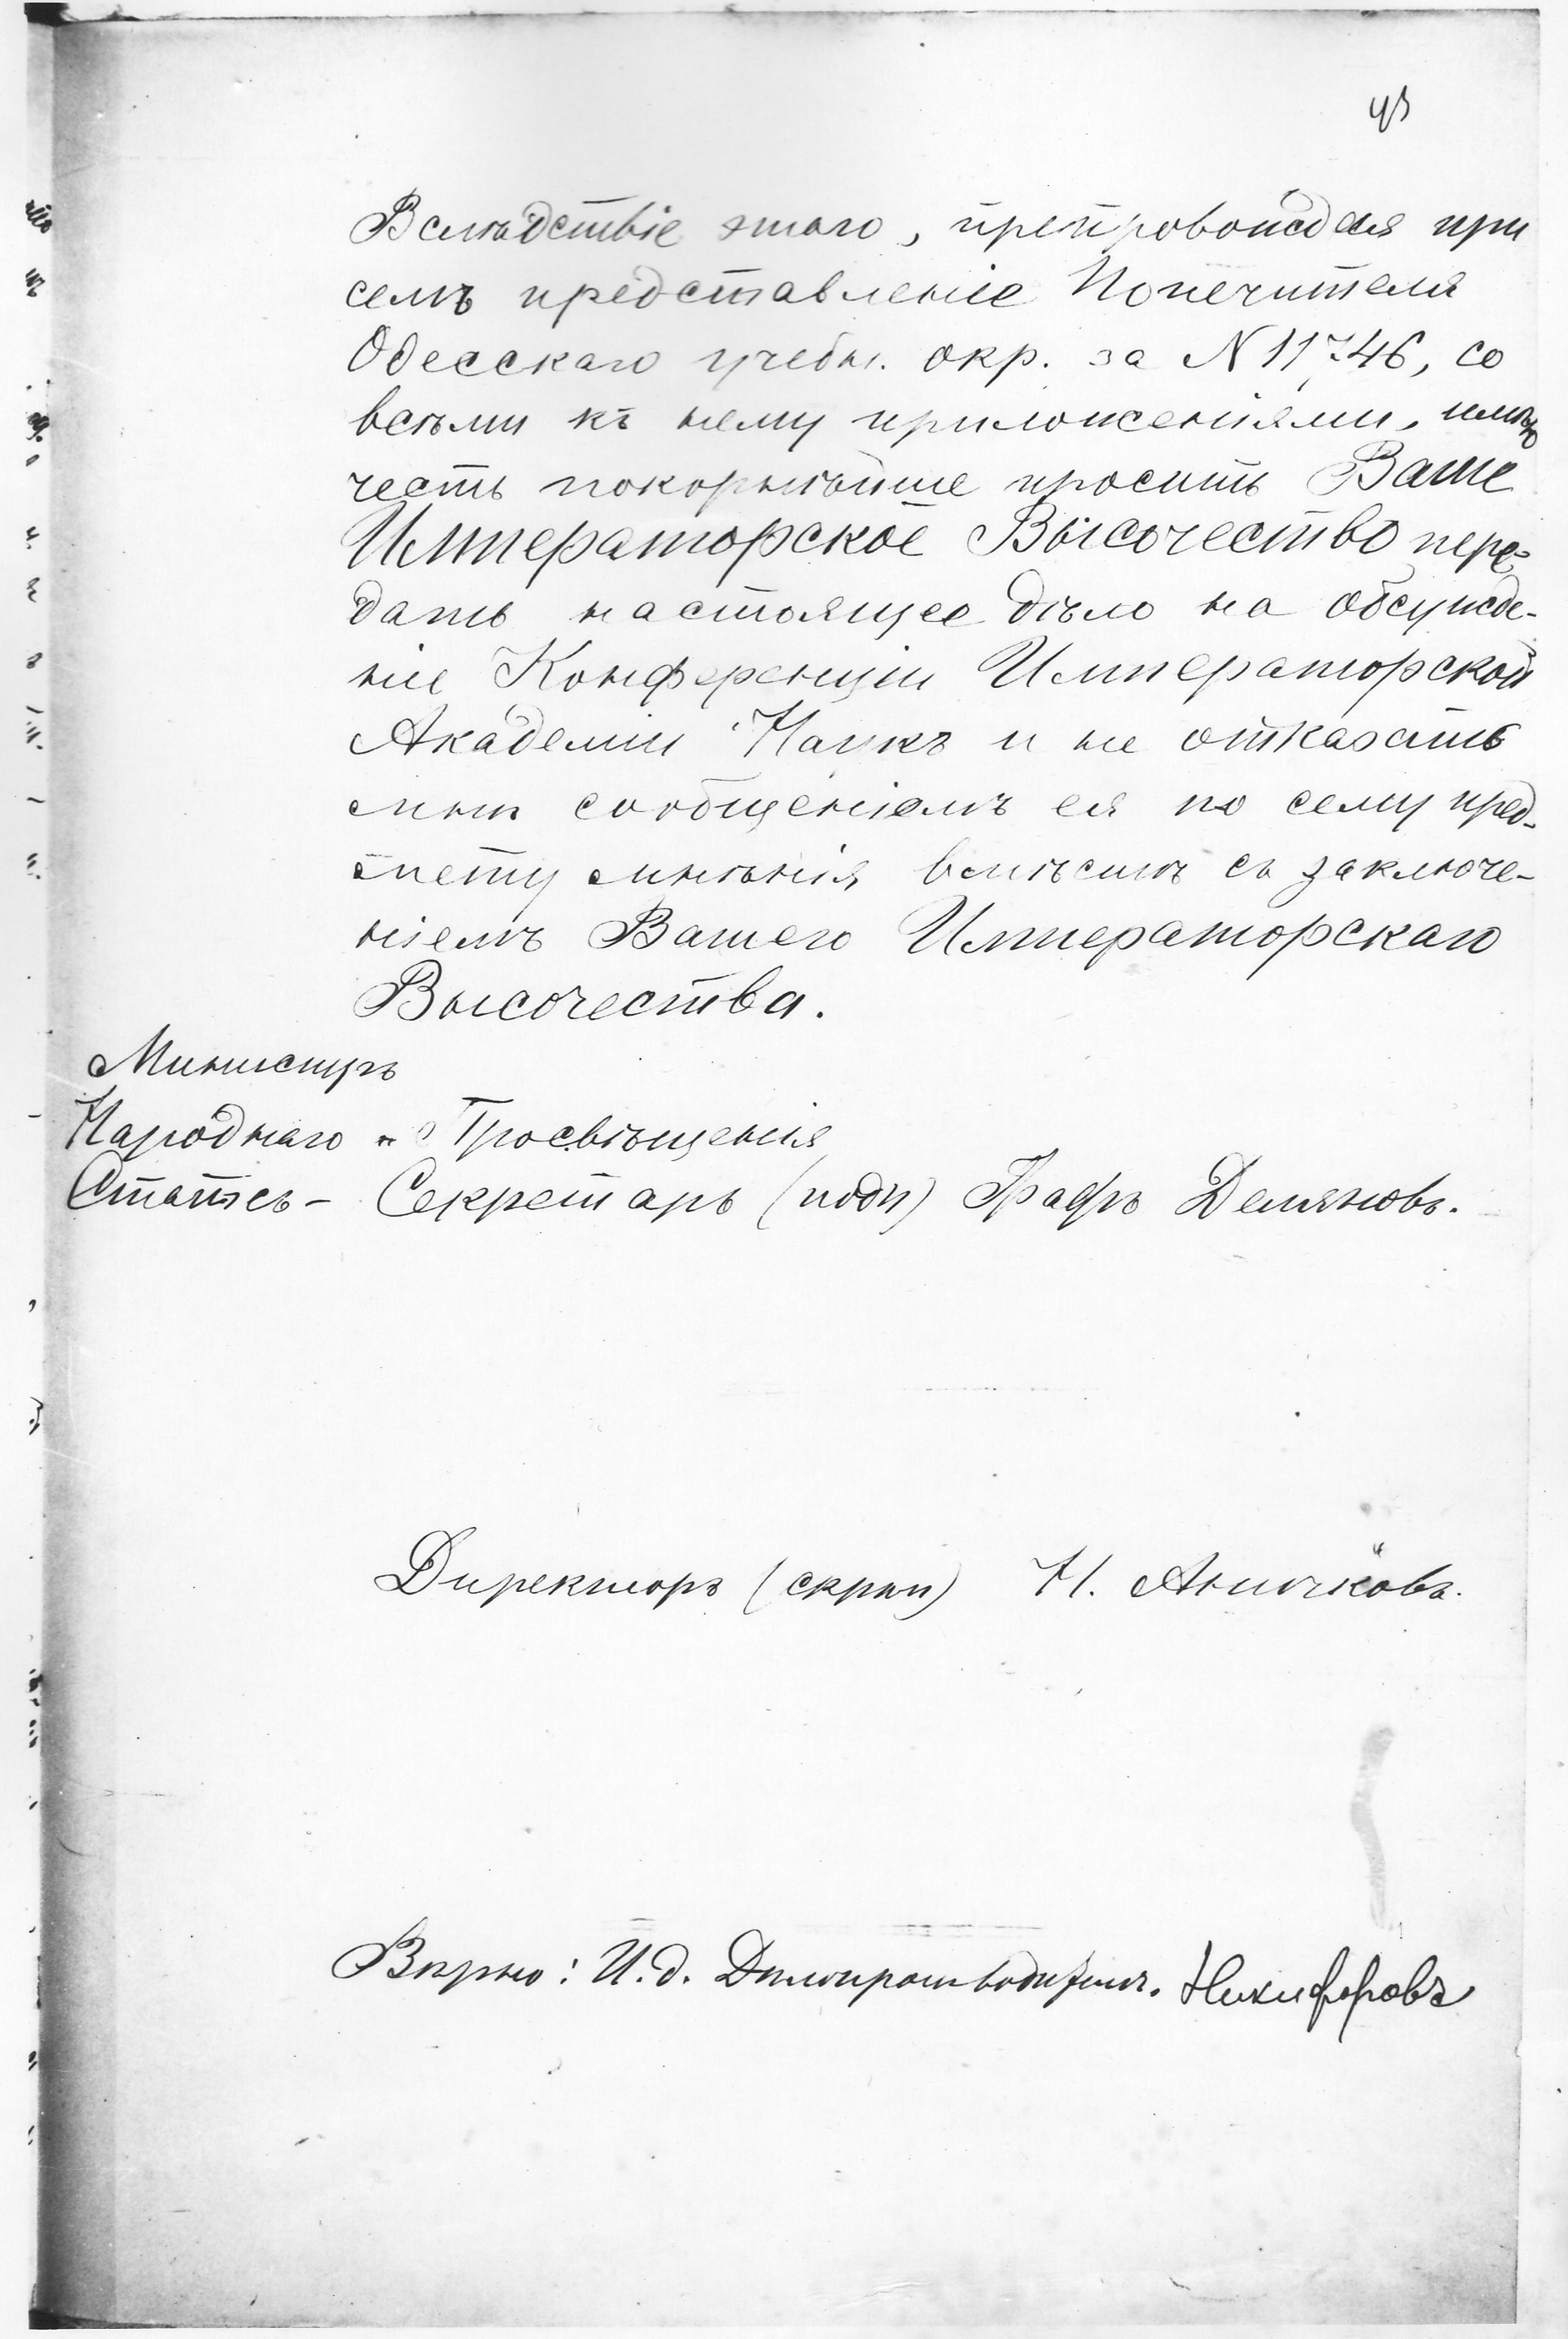 Вслѣдствіе этаго, препровождая при
семъ представленіе Попечителя
Одесскаго учебн. окр. за N 11746, со
всѣми къ нему приложеніями, имѣю
честь покорнѣйше просить Ваше
Императорское Высочество пере-
дать настоящее дѣло на обсужде-
ніе Конференціи Императорской
Академіи Наукъ и не отказать
мнѣ сообщеніемъ ея по сему пред-
мету мнѣнія вмѣстѣ съ заключе-
ніемъ Вашего Императорскаго
Высочества.
Министръ
Народнаго Просвѣщенія
Статсъ- Секретарь (подп) Графъ Деляновъ.
Директоръ (скрѣп) Н. Аничковъ.
Вѣрно: И.д. Дѣлопроизводителя. Никифоровъ